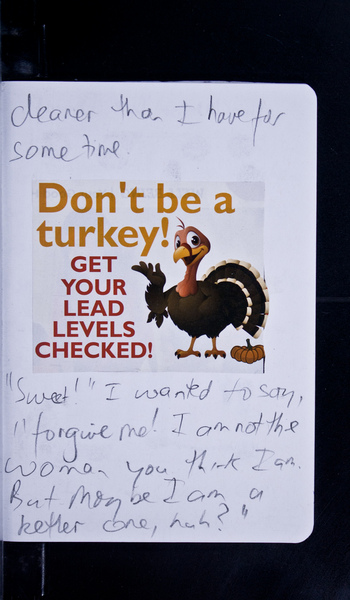 cleaner than I have for
some time.
Don't be a
turkey!
GET
YOUR
LEAD
LEVELS
CHECKED!
"Sweet!" I wanted to say,
"forgive me! I am not the
woman you think I am.
But maybe I am a
better one, huh?"